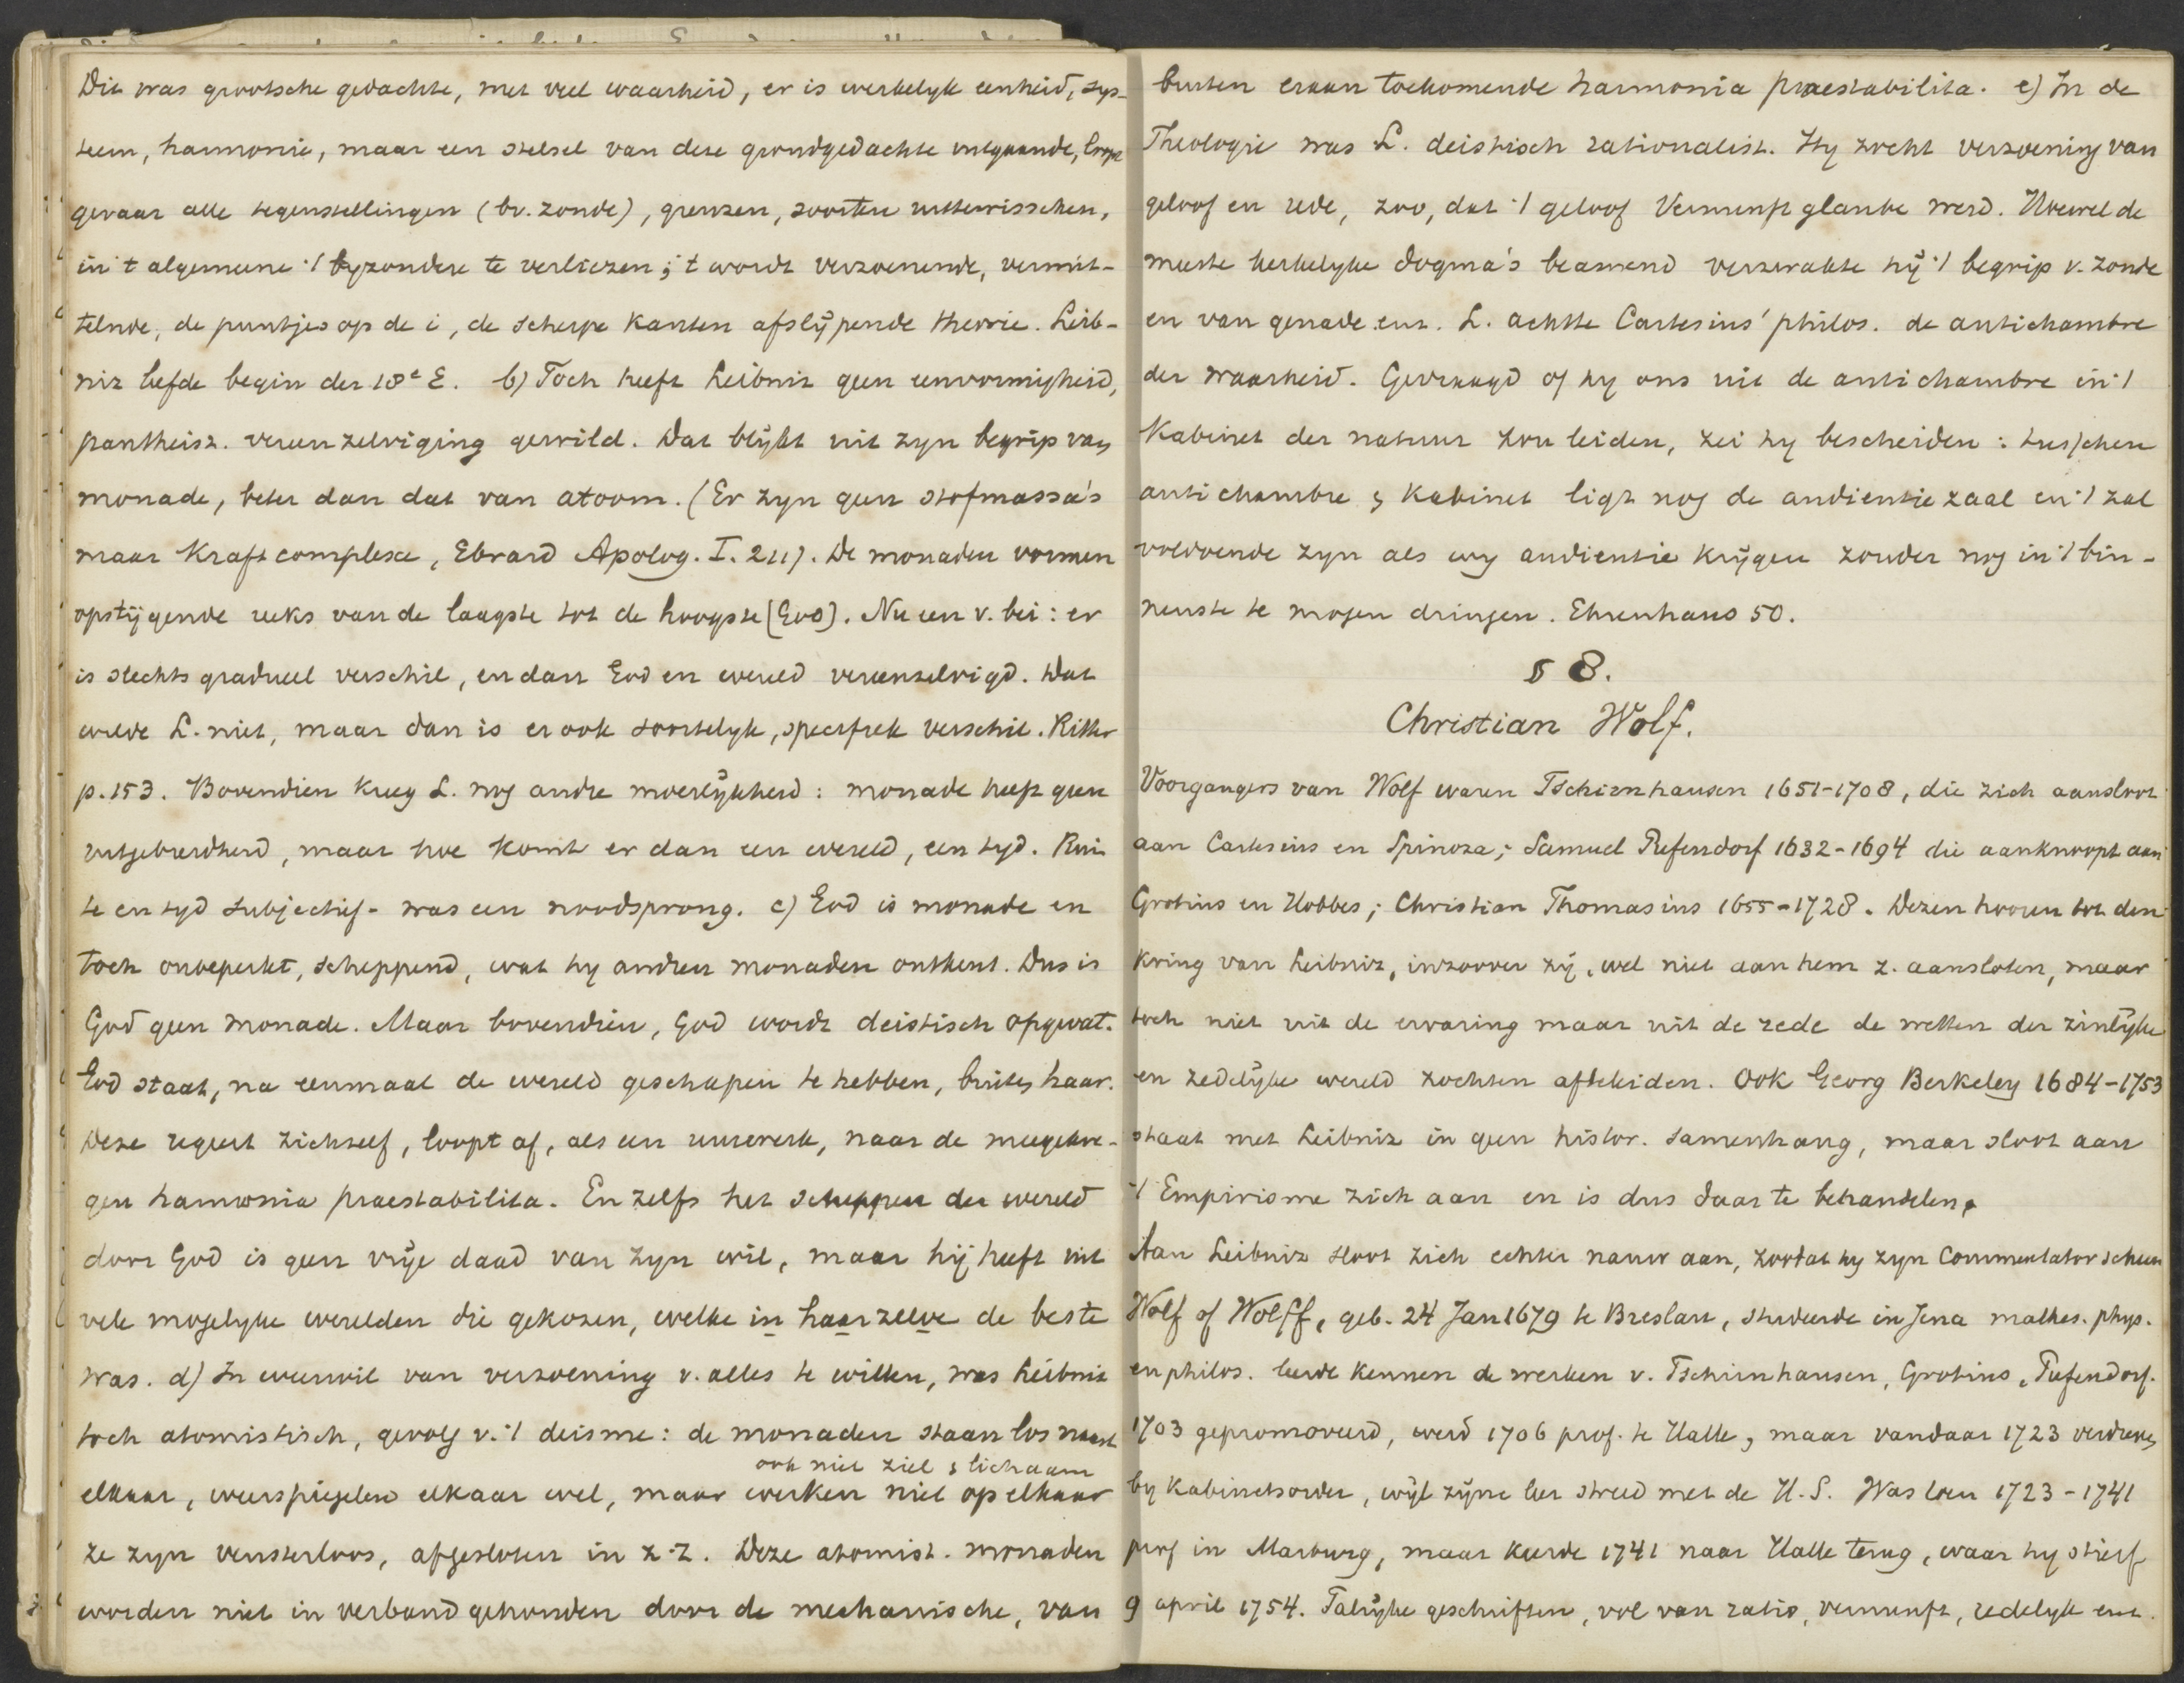 Dit was grootsche gedachte, met veel waarheid, er is werkelyk eenheid, sys-
teem, harmonie, maar een stelsel van deze grondgedachte uitgaande, loopt
gevaar alle tegenstellingen (bv. zonde), grenzen, soorten uittewisschen,
in 't algemeene 't byzondere te verliezen; 't wordt verzoenende, vermit-
telnde, de puntjes op de i, de scherpe kanten afslijpende theorie. Leib-
niz leefde begin der 18e E. b) Toch heeft Leibniz geen eenvormigheid,
pantheist. vereenzelviging gewild. Dat blijkt uit zyn begrip van
monade, beter dan dat van atoom. (Er zyn geen stofmassa's
maar Kraftcomplexe, Ebrard Apolog. I. 211). De monaden vormen
opstijgende reeks van de laagste tot de hoogste [God]. Nu een v. bei: er
is slechts gradueel verschil, en dan God en wereld vereenzelvigd. Dat
wilde L. niet, maar dan is er ook soortelyk, specifiek verschil. Ritter
p. 153. Bovendien kreeg L. nog andre moeilijkheid: monade heeft geen
uitgebreidheid, maar hoe komt er dan een wereld, een tyd. Ruim
te en tyd subjectief - was een noodsprong. c) God is monade en
toch onbeperkt, scheppend, wat hy andren monaden ontkent. Dus is
God geen monade. Maar bovendien, God wordt deistisch opgevat.
God staat, na eenmaal de wereld geschapen te hebben, buiten haar.
Deze regeert zichzelf, loopt af, als een uurwerk, naar de meegekre-
gen harmonia praestabilita. En zelfs het scheppen der wereld
door God is geen vrije daad van zyn wil, maar hij heeft uit
vele mogelyke werelden die gekozen, welke in haarzelve de beste
was. d) In weerwil van verzoening v. alles te willen, was Leibniz
toch atomistisch, gevolg v. 't deisme: de monaden staan los naast
ook niet ziel & lichaam
elkaar, weerspiegelen elkaar wel, maar werken niet op elkaar
ze zyn vensterloos, afgesloten in z. z. Deze atomist. monaden
worden niet in verband gehouden door de mechanische, van
buiten eraan toekomende harmonia praestabilita. e) In de
Theologie was L. deistisch rationalist. Hy zocht verzoening van
geloof en rede, zoo, dat 't geloof Vernunftglaube werd. Hoewel de
meeste kerkelyke dogma's beamend verzwakte hij 't begrip v. zonde
en van genade enz. L. achtte Cartesius' philos. de antichambre
der waarheid. Gevraagd of hy ons uit de antichambre in 't
Kabinet der natuur zou leiden, zei hy bescheiden: tusschen
antichambre & Kabinet ligt nog de audientiezaal en 't zal
voldoende zyn als wy audientie krijgen zonder nog in 't bin-
nenste te mogen dringen. Ehrenhaus 50.
§ 8.
Christian Wolf.
Voorgangers van Wolf waren Tschirnhausen 1651-1708, die zich aansloot
aan Cartesius en Spinoza; Samuel Pufendorf 1632-1694 die aanknoopt aan
Grotius en Hobbes; Christian Thomasius 1655-1728. Dezen hooren tot den
Kring van Leibniz, inzoover zij, wel niet aan hem z. aansloten, maar
toch niet uit de ervaring maar uit de rede de wetten der zinlijke
en zedelijke wereld zochten afteleiden. Ook Georg Berkeley 1684-1753
staat met Leibniz in geen histor. samenhang, maar sloot aan
't Empirisme zich aan en is dus daar te behandelen.
Aan Leibniz sloot zich echter nauw aan, zoodat hy zyn Commentator scheen
Wolf of Wolff, geb. 24 Jan 1679 te Breslau, studeerde in Jena mathes. phys.
en philos. leerde kennen de werken v. Tschirnhausen, Grotius, Pufendorf.
1703 gepromoveerd, werd 1706 prof. te Halle, maar vandaar 1723 verdreven
by Kabinetsorder, wijl zijne leer streed met de H. S. Was toen 1723-1741
prof in Marburg, maar keerde 1741 naar Halle terug, waar hy stierf
9 april 1754. Talrijke geschriften, vol van ratio, vernunft, redelyk enz.